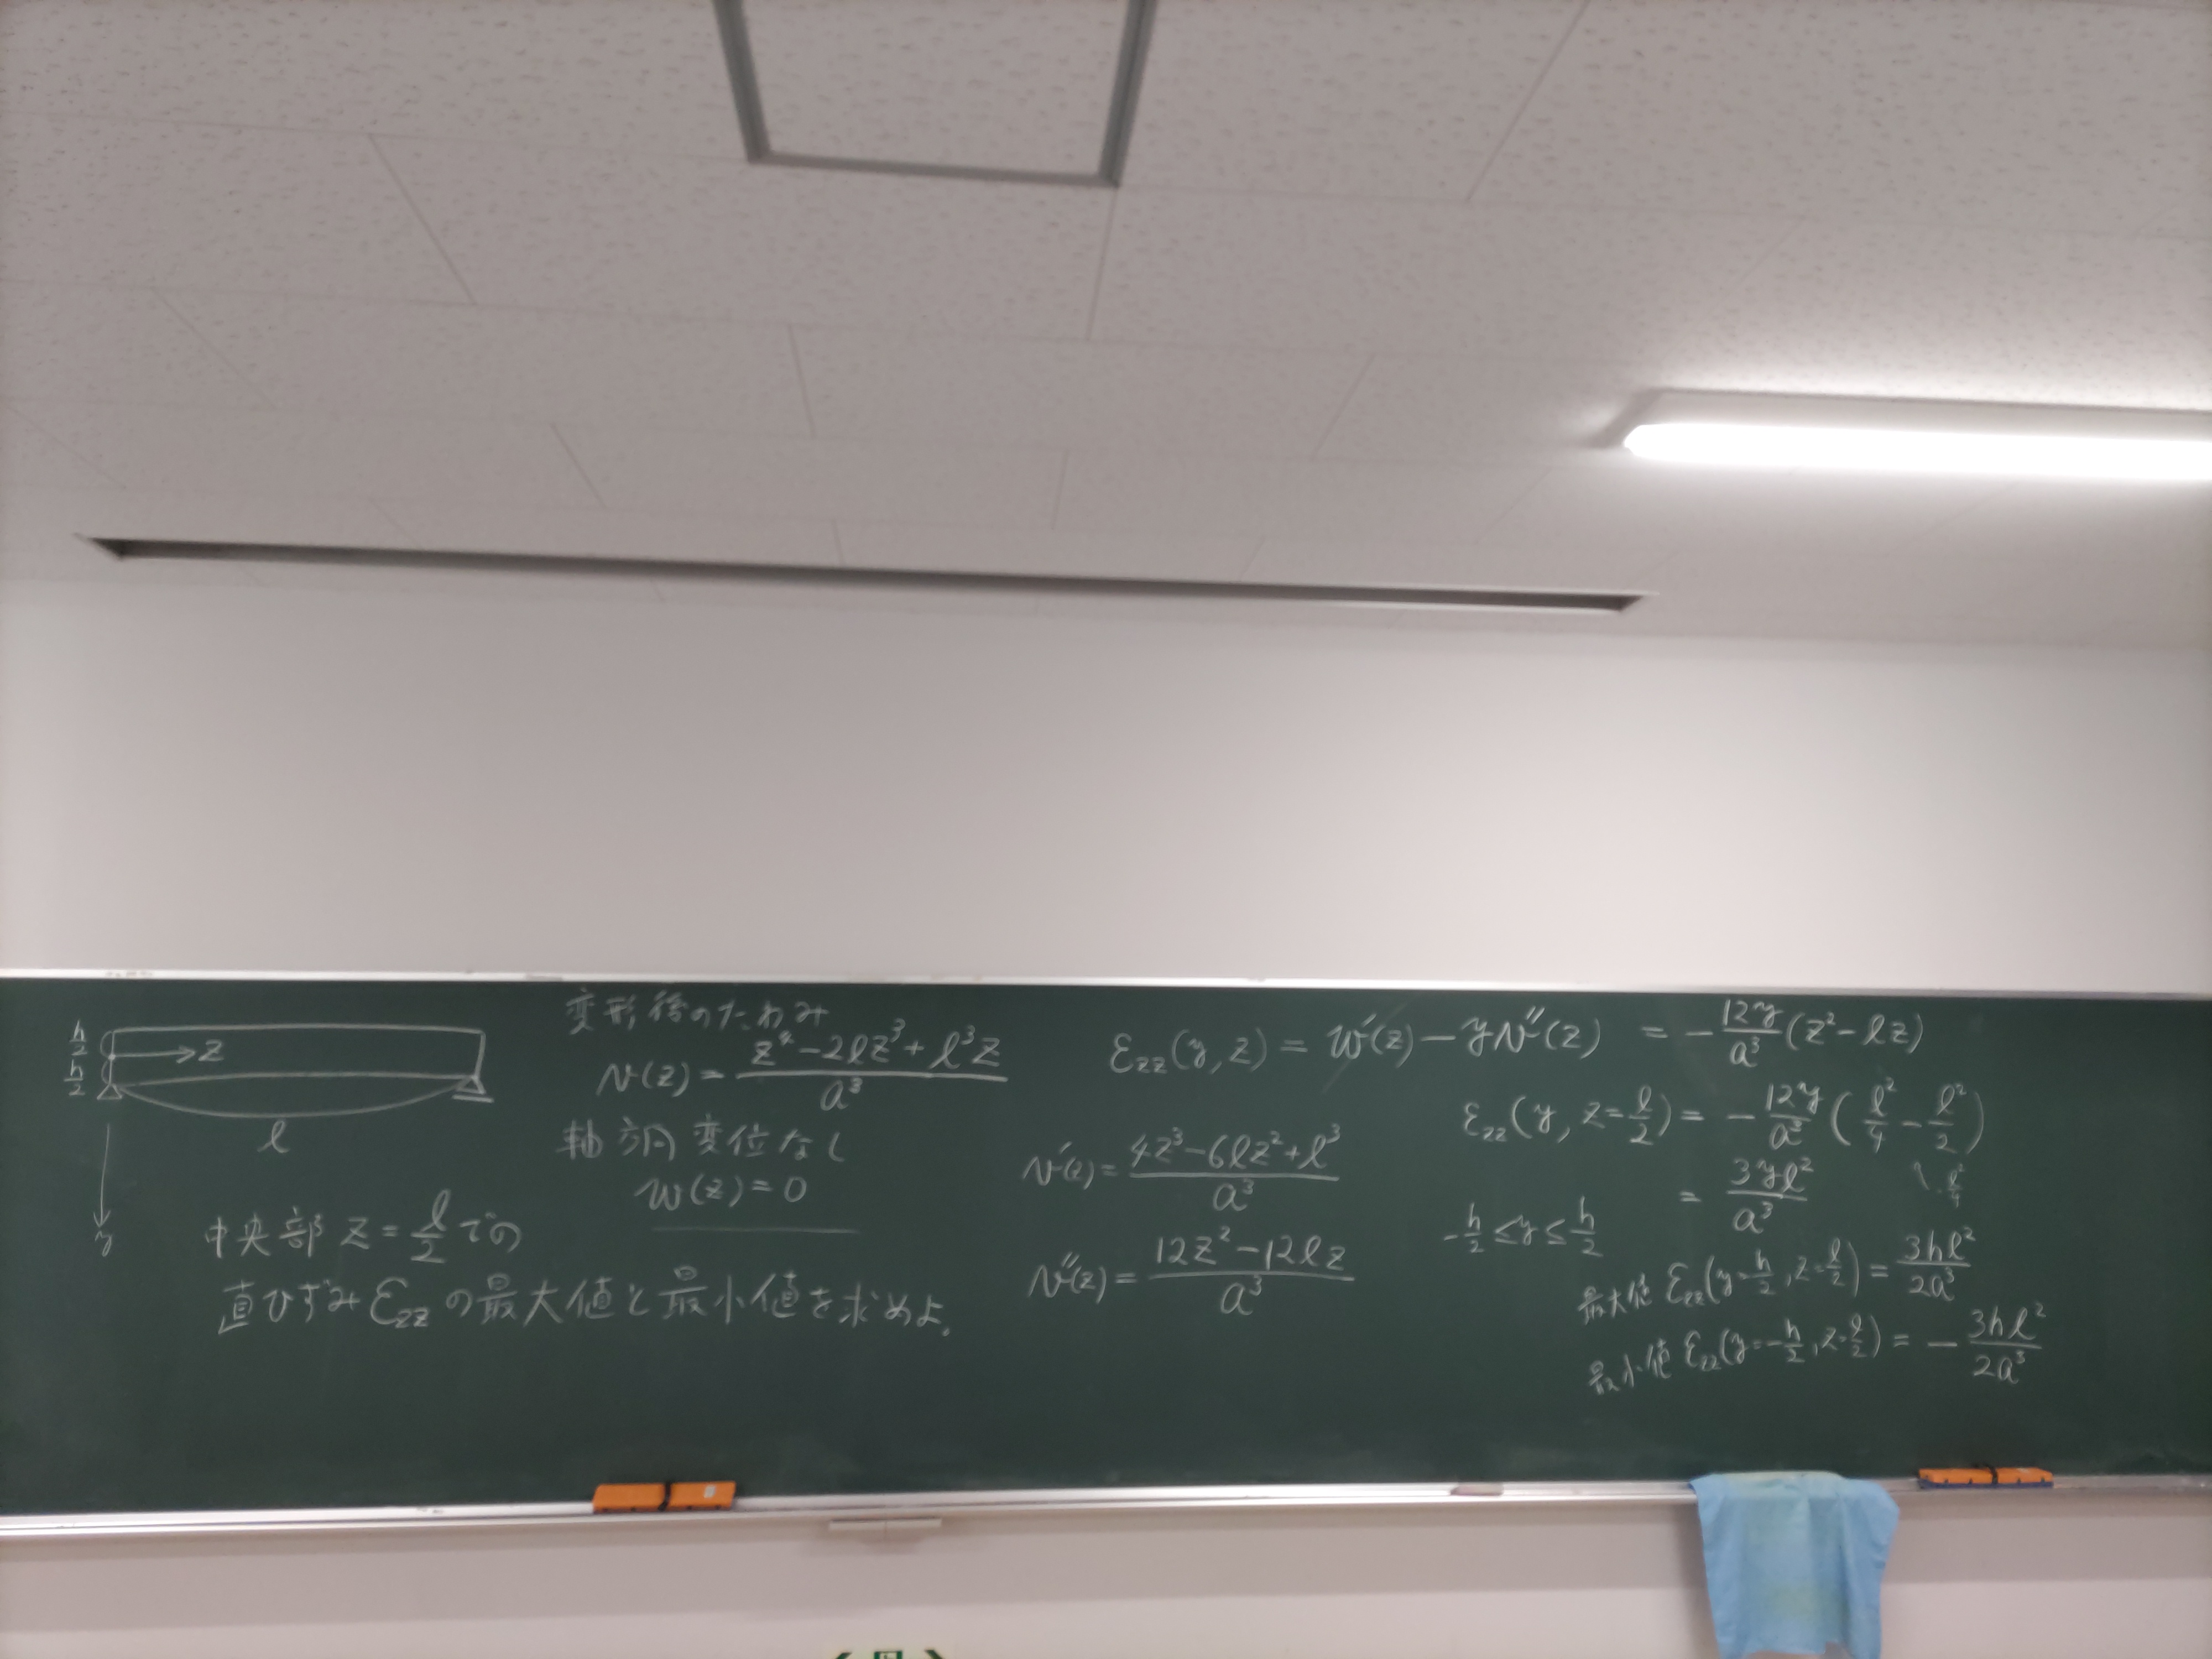 h/2
h/2
z
l
y
変形後のたわみ
v(z) = (z⁴ - 2lz³ + l³z) / a³
軸方向変位なし
w(z) = 0
中央部 z = l/2 での
直ひずみ εzz の最大値と最小値を求めよ.
εzz(y, z) = w′(z) - yv″(z) = - 12y/a³ (z² - lz)
v′(z) = (4z³ - 6lz² + l³) / a³
v″(z) = (12z² - 12lz) / a³
εzz(y, z = l/2) = - 12y/a³ (l²/4 - l²/2)
- l²/4
= 3yl²/a³
-h/2 ≤ y ≤ h/2
最大値 εzz(y = h/2, z = l/2) = 3hl²/2a³
最小値 εzz(y = -h/2, z = l/2) = - 3hl²/2a³